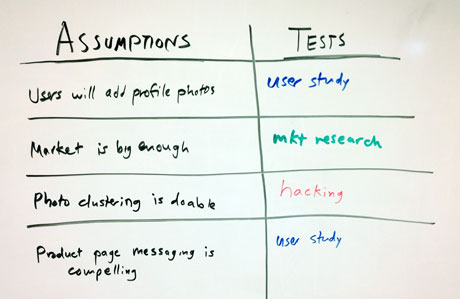 ASSUMPTIONS TESTS
Users will add profile photos user study
Market is big enough mkt research
Photo clustering is doable hacking
Product page messaging is user study
compelling